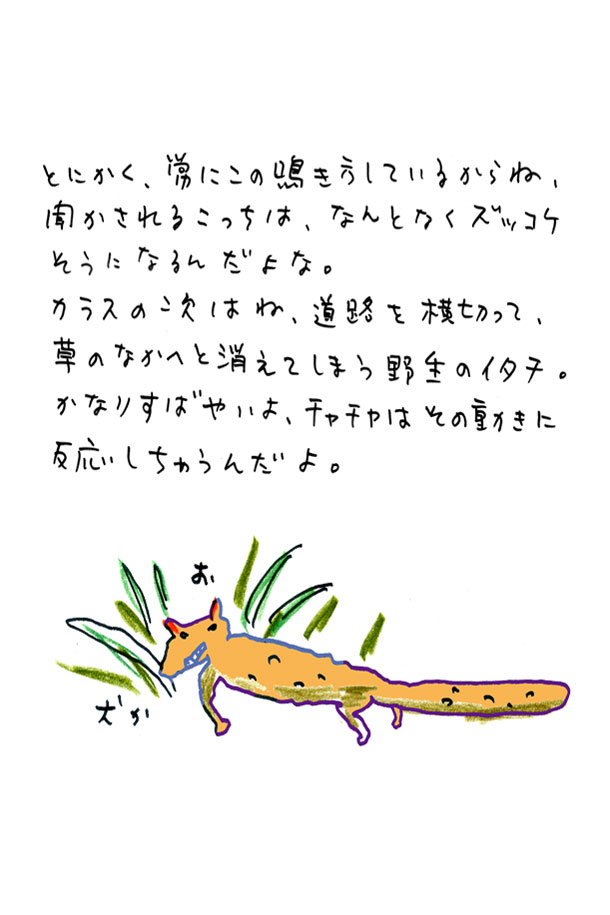 とにかく、常にこの鳴き方しているからね、
聞かされるこっちは、なんとなくズッコケ
そうになるんだよな。
カラスの次はね、道路を横切って、
草のなかへと消えてしまう野生のイタチ。
かなりすばやいよ、チャチャはその動きに
反応しちゃうんだよ。
お
犬か